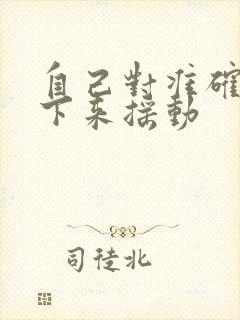 自己對准確
下來搖動
司徒北